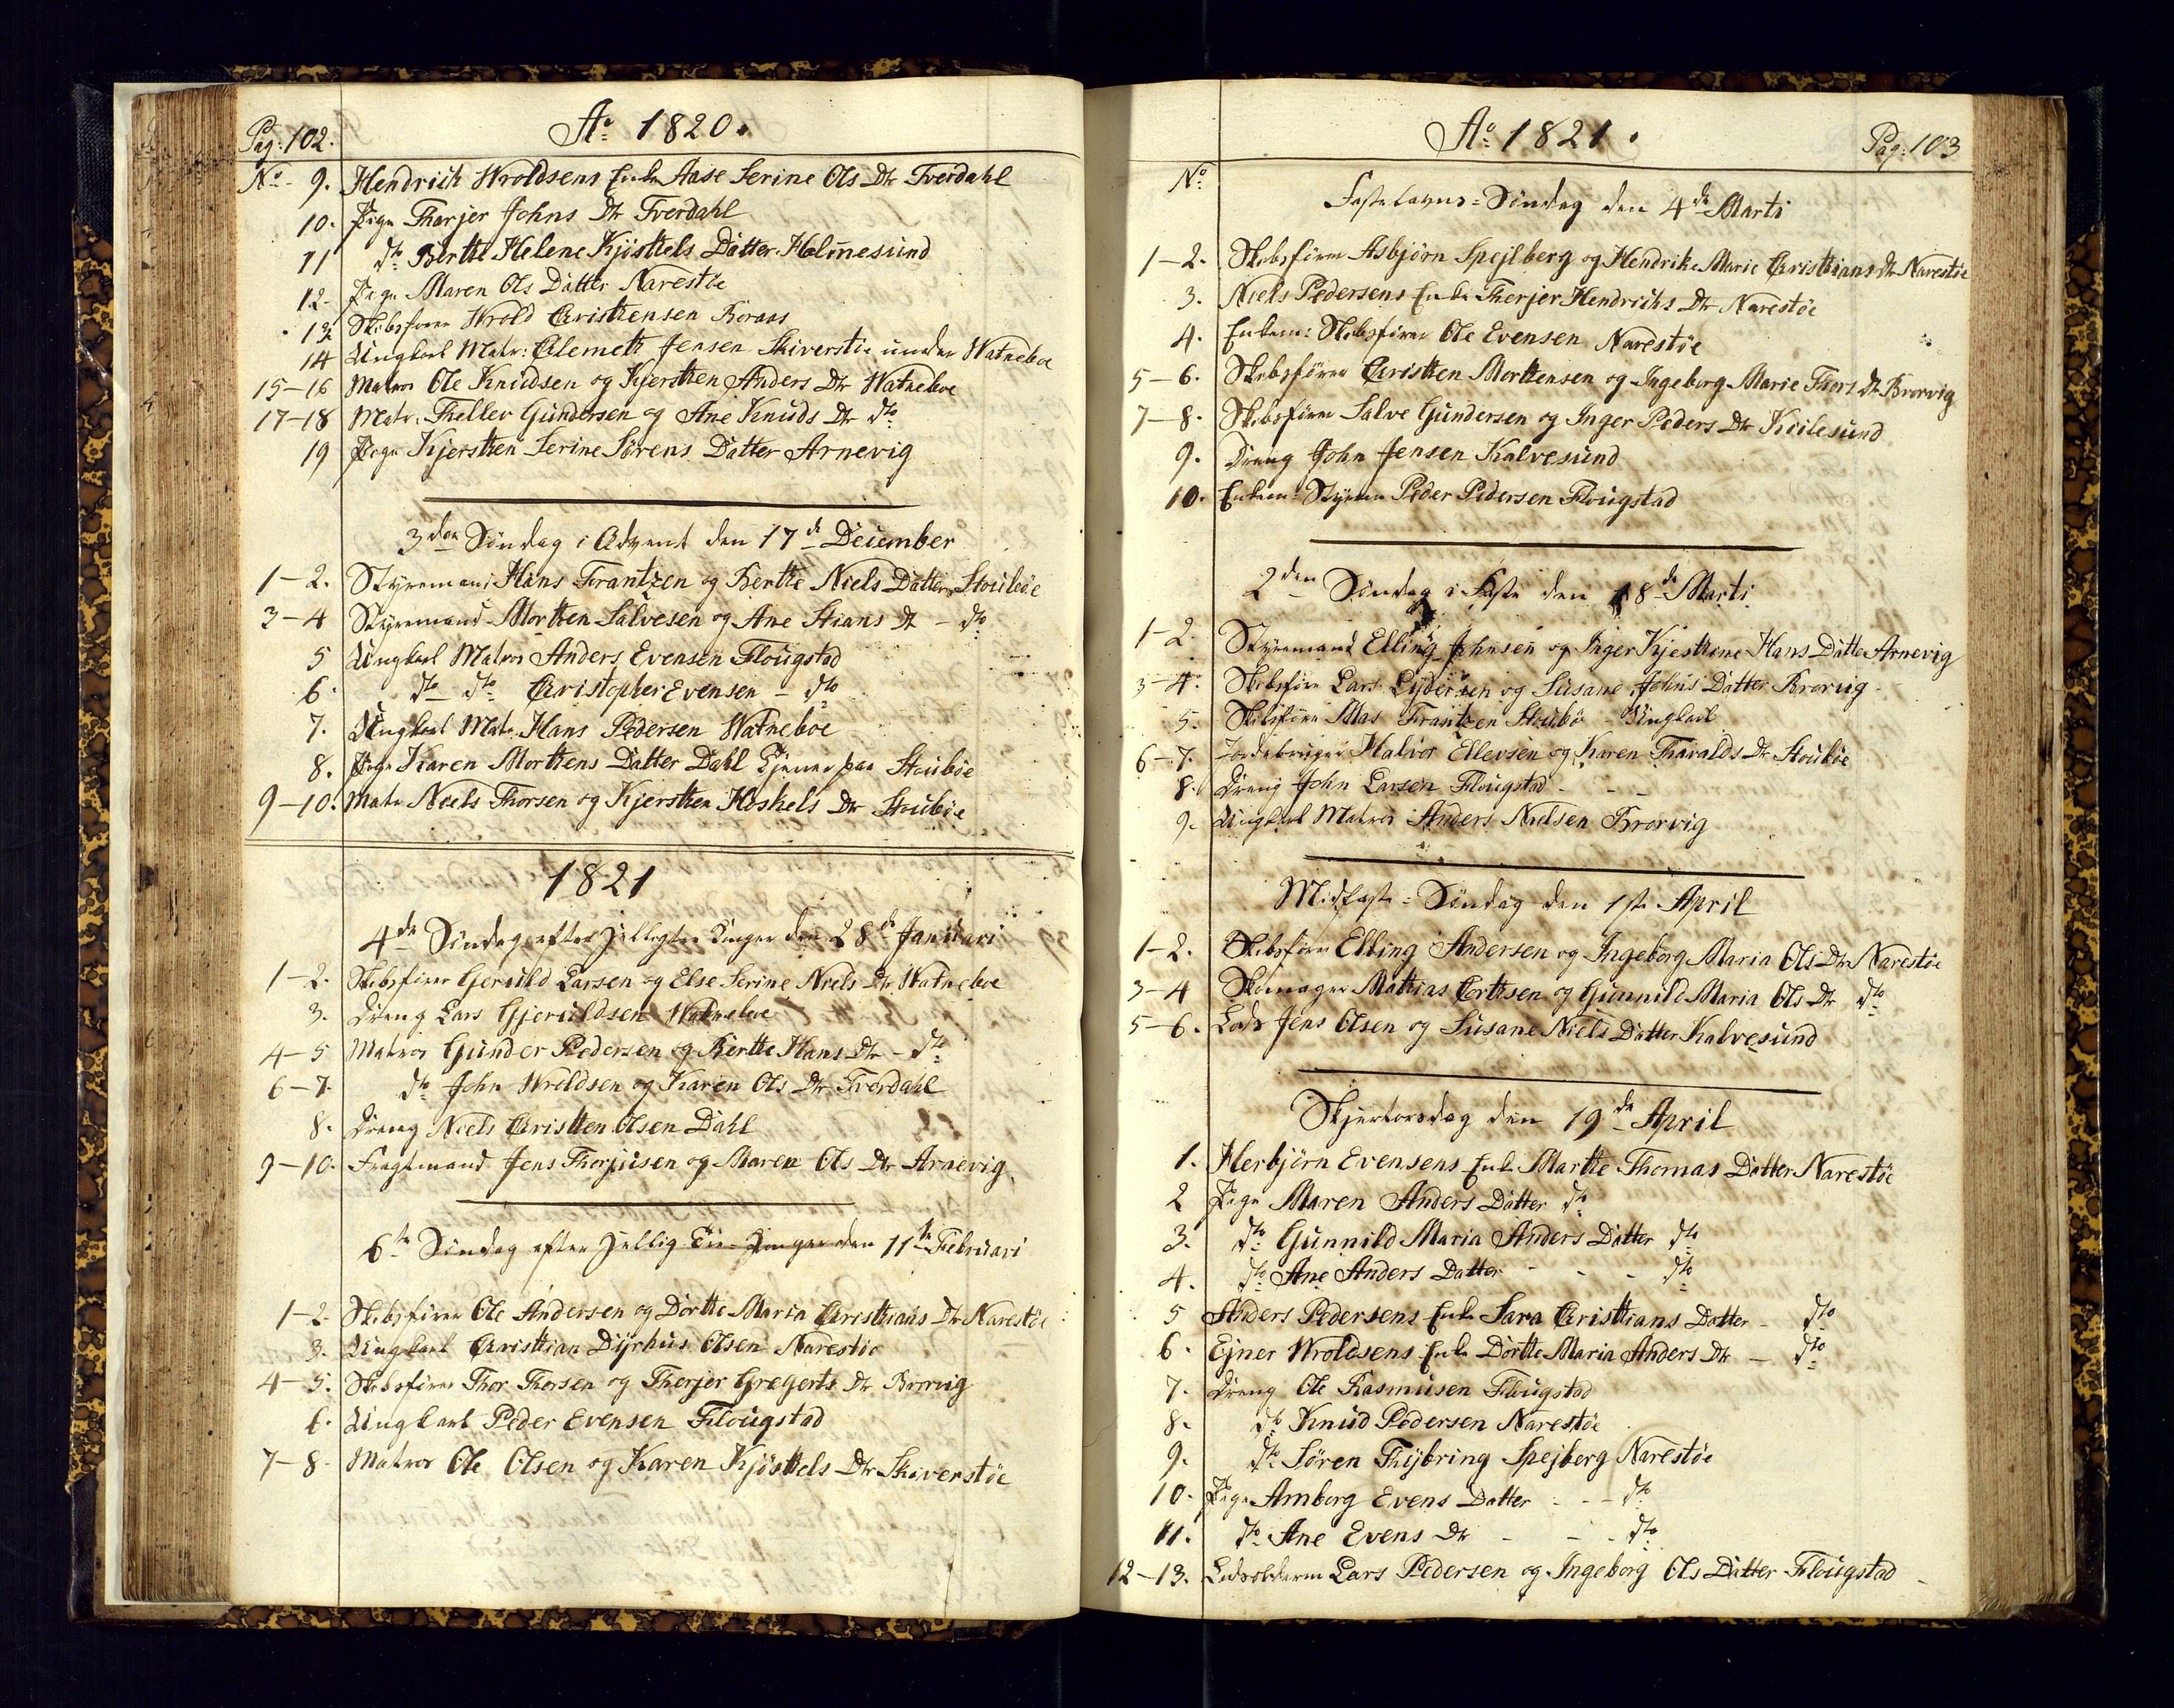 Pag: 102.
Ao 1820.
No 9. Hendrich Wroldsens Enke Aase Serine Ols Dtr Tverdahl
10. Pige Tharjer Johns Dtr Tverdahl
11 dto Birthe Helene Kjösttels Datter Holmesund
12. Pige Maren Ols Datter Narestöe
13. Skibsförer Wrold Christensen Boraas
14 Ungkarl Matr: Clemett Jensen Skiverstöe under Watneboe
15-16 Matros Ole Knudsen og Kjersthen Anders Dtr Watneboe
17-18 Matr: Thellev Gundersen og Ane Knuds Dtr dto
19 Pige Kjersthen Serine Sørens Datter Arnevig
3die Söndag i Advent den 17de December
1-2. Styrmand Hans Frantzen og Berthe Niels Datter Stouböe
3-4 Styremand Morthen Salvesen og Ane Stians Dt - dto
5 Ungkarl Matros Anders Evensen Flougstad
6. dto dto Christopher Evensen - dto
7. Ungkarl Matr Hans Pedersen Watneboe
8. Pige Karen Morthens Datter Dahl Tjener paa Stouböe
9-10. Matr Niels Thorsen og Kjersthen Koskels Dtr Stouböe
1821
4de Söndag efter Helligtre Konger den 28de Januari
1-2. Skibsförer Geruld Larsen og Else Serine Niels Dtr Watneboe
3. Dreng Lars Gjeruldsen Watneboe
4-5 Matros Gunder Pedersen og Berthe Hans Dtr - dto
6-7. dto John Wroldsen og Karen Ols Dtr Tverdahl
8. Dreng Niels Christen Olsen Dahl
9-10. Fragtmand Jens Thorjusen og Maren Ols Dtr Arnevig
6te Söndag efter Hellig Tre-Konger den 11te Februari
1-2. Skibsförer Ole Andersen og Dorthe Maria Christians Dtr Narestöe
3. Ungkarl Christian Dyrhus Olsen Narestöe
4-5. Skibsförer Thor Thorsen og Therjer Gregerts Dtr Brorvig
6. Ungkarl Peder Evensen Flougstad
7-8. Matros Ole Olsen og Karen Kjösttels Dtr Skiverstöe
Ao 1821.
Pag: 103
No
Fastelavns-Söndag den 4de Marti
1-2. Skibsförer Asbjörn Spejlberg og Hendrike Marie Christians Dtr Narestöe
3. Niels Pedersens Enke Therjer Hendrichs Dtr Narestöe
4. Enkem: Skibsförer Ole Evensen Narestöe
5-6. Skibsförer Christen Morthensen og Ingeborg Marie Thors Dt Brorvig
7-8. Skibsförer Salve Gundersen og Inger Peders Dtr Kiilesund
9. Dreng John Jensen Kalvesund
10. Enkem: Styrm Peder Pedersen Flougstad
2den Söndag i Faste den 18de Marti
1-2. Styremand Elling Johnsen og Inger Kjestene Hans Datter Arnevig
3-4. Skibsförer Lars Lydersen og Susane Johns Datter Brorvig
5. Skibsförer Mas Frantzen Stouböe - Ungkarl
6-7. Jordebruger Halvor Ellevsen og Karen Tharalds Dtr Stouböe
8. Dreng John Larsen Flougstad - - -
9. Ungkarl Matros Anders Nielsen Brorvig
Midfaste-Söndag den 1ste April
1-2. Skibsförer Elling Andersen og Ingeborg Maria Ols Dtr Narestöe
3-4 Skomager Mathias Ertsen og Gunnild Maria Ols Dtr dto
5-6. Lods Jens Olsen og Susane Niels Datter Kalvesund
Skjertorsdag den 19de April
1. Herbjörn Evensens Enke Marthe Thomas Datter Narestöe
2 Pige Maren Anders Datter dto
3. dto Gunnild Maria Anders Datter dto
4. dto Ane Anders Datter - - - dto
5 Anders Pedersens Enke Sara Christians Datter - dto
6. Ejner Wroldsens Enke Dorthe Maria Anders Dtr - dto
7. Dreng Ole Rasmusen Flougstad
8. dto Knud Pedersen Narestöe
9. dto Søren Thybring Spejberg Narestöe
10. Pige Amborg Evens Datter - - - dto
11. dto Ane Evens Dtr - - - dto
12-13. Lodsolderm Lars Pedersen og Ingeborg Ols Datter Flougstad